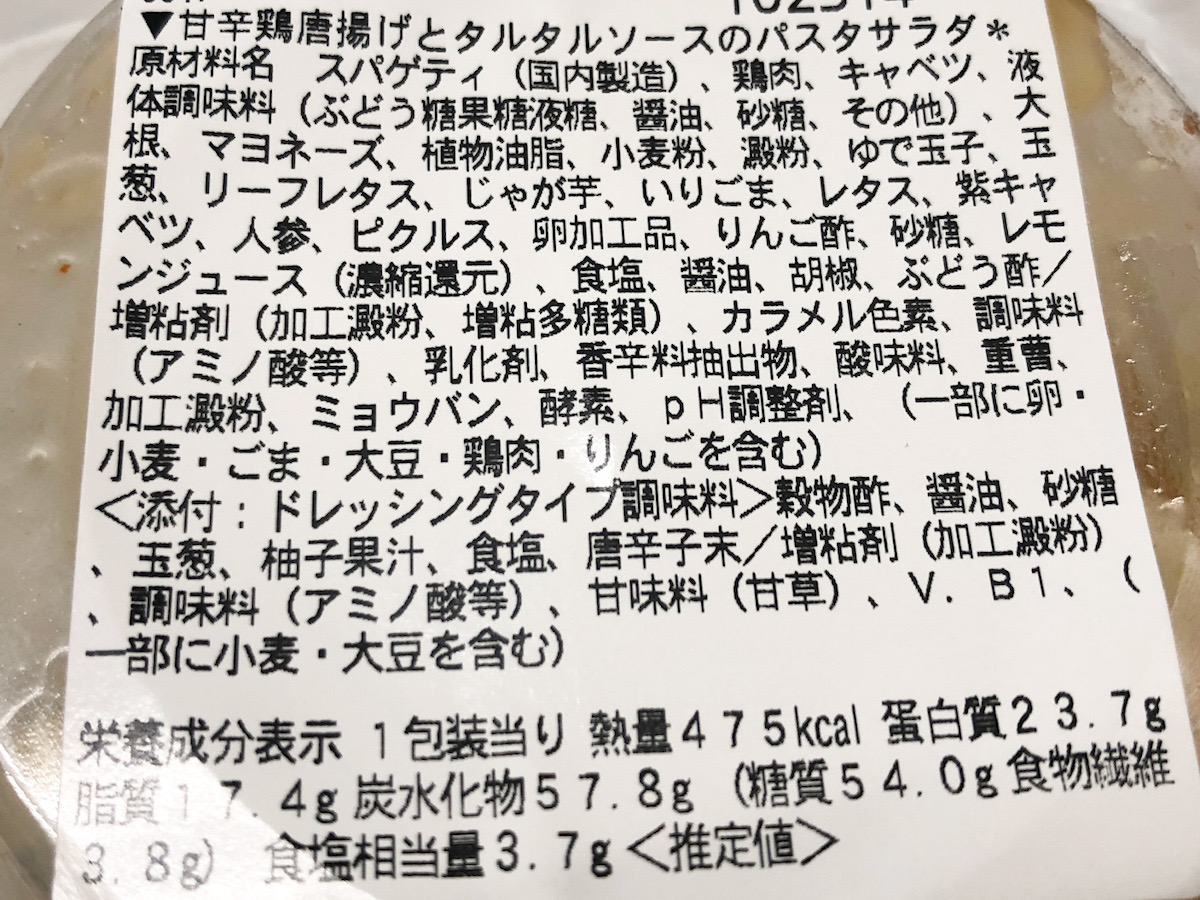 ▼甘辛鶏唐揚げとタルタルソースのパスタサラダ＊
原材料名　スパゲティ（国内製造）、鶏肉、キャベツ、液
体調味料（ぶどう糖果糖液糖、醤油、砂糖、その他）、大
根、マヨネーズ、植物油脂、小麦粉、澱粉、ゆで玉子、玉
葱、リーフレタス、じゃが芋、いりごま、レタス、紫キャ
ベツ、人参、ピクルス、卵加工品、りんご酢、砂糖、レモ
ンジュース（濃縮還元）、食塩、醤油、胡椒、ぶどう酢／
増粘剤（加工澱粉、増粘多糖類）、カラメル色素、調味料
（アミノ酸等）、乳化剤、香辛料抽出物、酸味料、重曹、
加工澱粉、ミョウバン、酵素、ｐＨ調整剤、（一部に卵・
小麦・ごま・大豆・鶏肉・りんごを含む）
＜添付：ドレッシングタイプ調味料＞穀物酢、醤油、砂糖
、玉葱、柚子果汁、食塩、唐辛子末／増粘剤（加工澱粉）
、調味料（アミノ酸等）、甘味料（甘草）、Ｖ．Ｂ１、（
一部に小麦・大豆を含む）
栄養成分表示 １包装当り 熱量４７５kcal 蛋白質２３．７ｇ
脂質１７．４ｇ炭水化物５７．８ｇ（糖質５４．０ｇ食物繊維
３．８ｇ）　食塩相当量３．７ｇ＜推定値＞